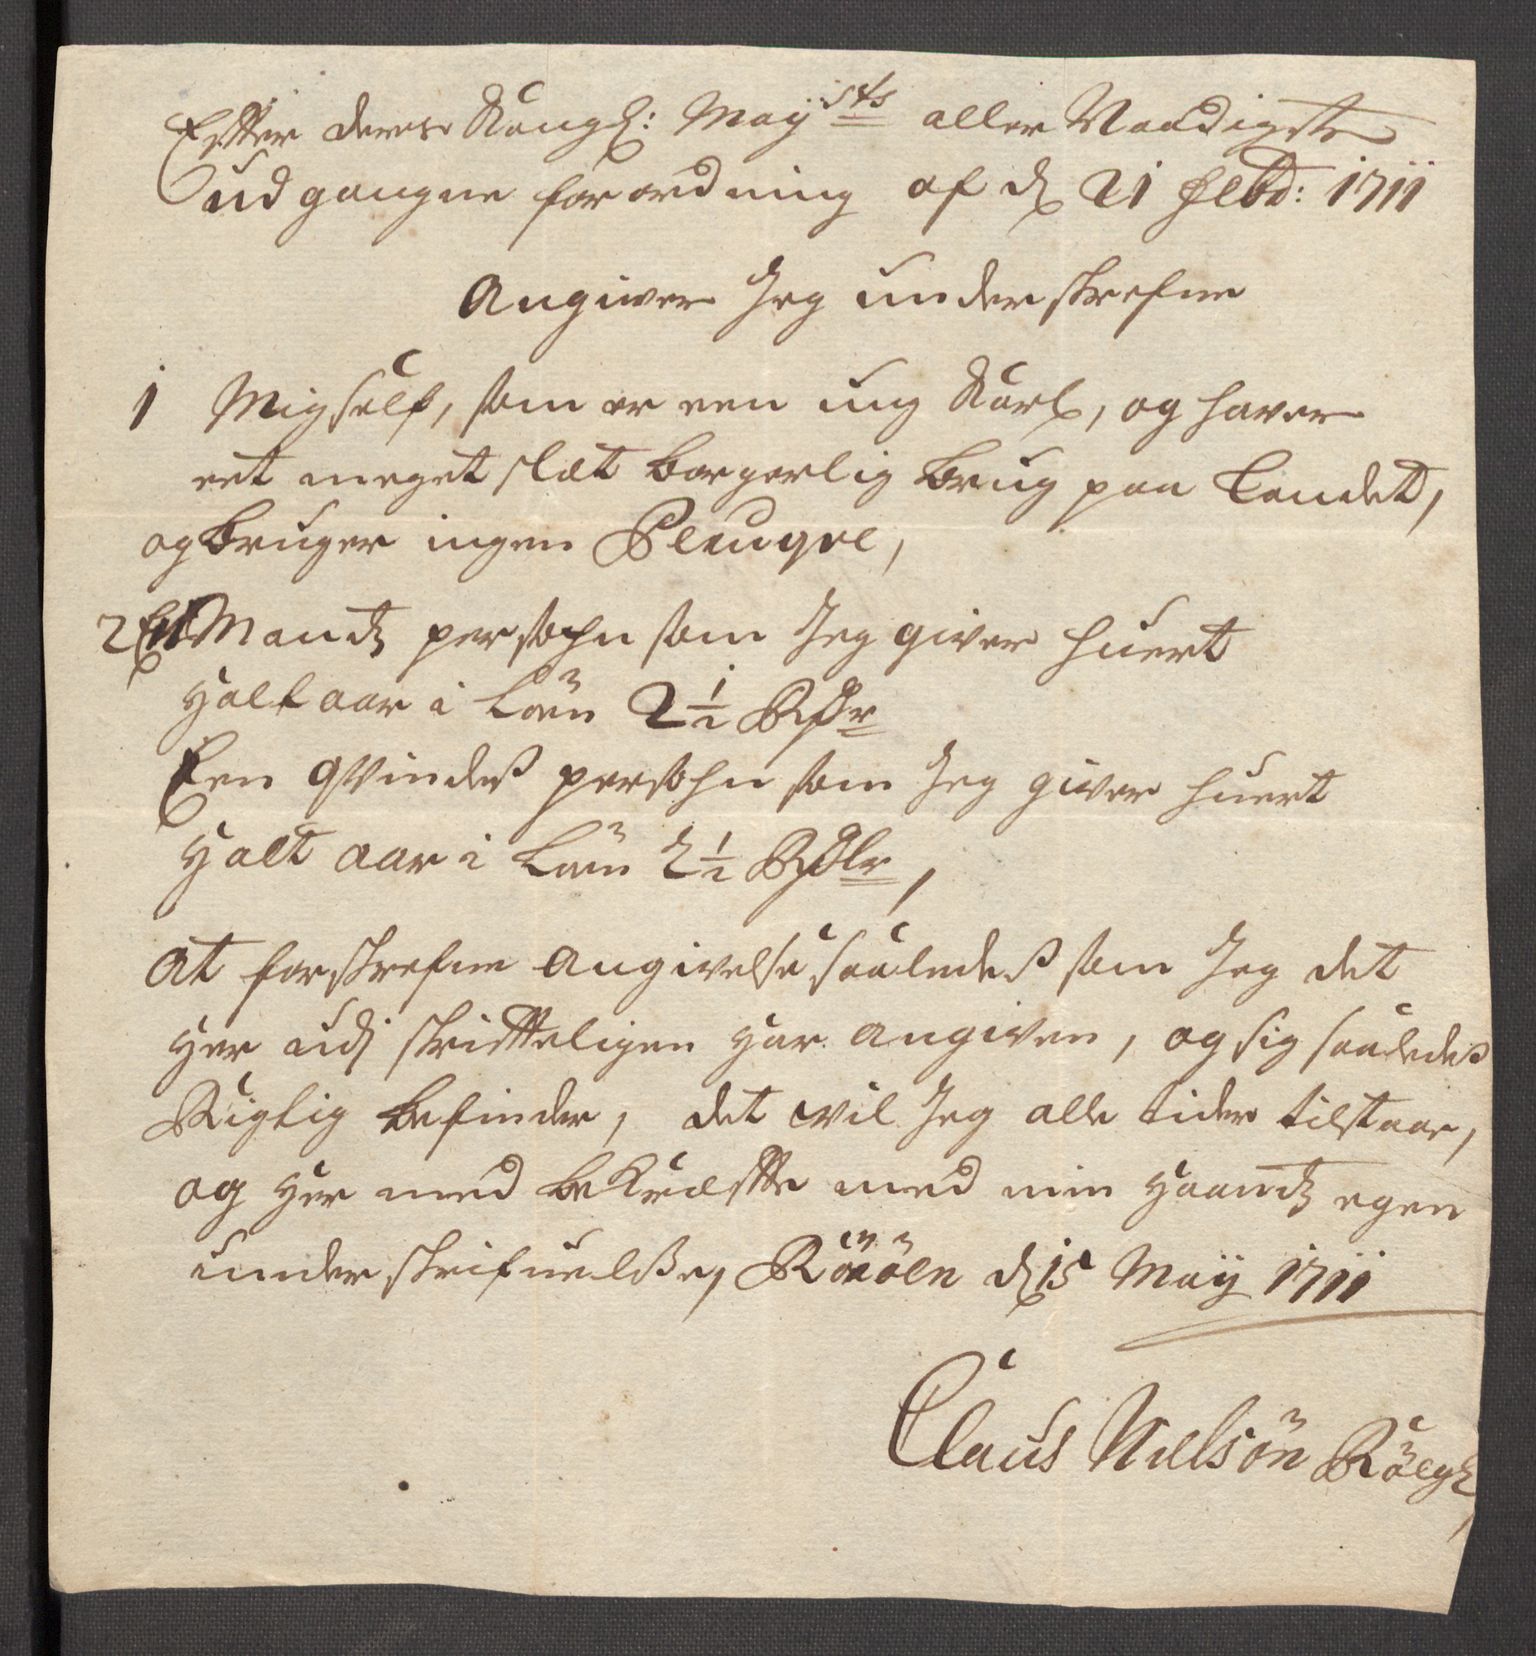 Effter deres Kongl: May:sts aller Naadigste
udgangne forordning af d 21 Febr: 1711
Angiver Jeg underskrefne
1 Migself, som er een ung Karl, og haver
eet meget slæt borgerlig brug paa Landet,
og bruger ingen Peruqve,
2 En Mands persohn som Jeg giver huert
Half aar i Løn 2½ Rdr
Een qVindes persohn som Jeg giver huert
Halt aar i Løn 2½ Rdlr,
At forskrefne Angivelse saaledeß som Jeg det
Her udj skriftteligen har angiven, og sig saaledeß
Rigtig befinder, det vil Jeg alle tider tilstaae,
og Her med bekræftte med min Haands egen
underskrifuelße, d 15 Maÿ 1711
Claus Nielsøn